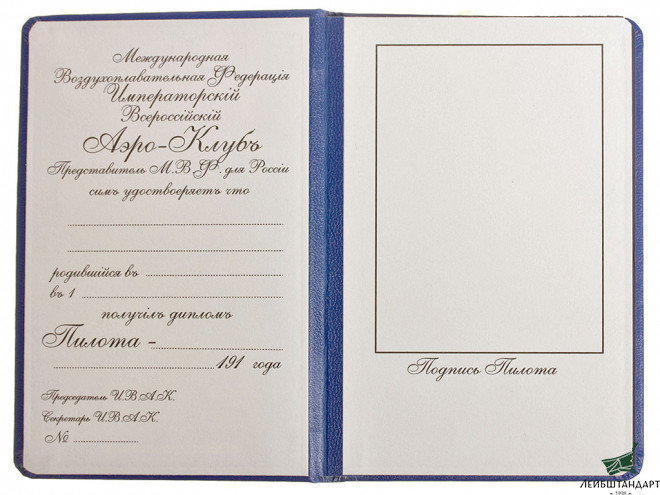 Международная
Воздухоплавательная Федерацiя
Императорскiй
Всероссiйскiй
Аэро-Клубъ
Представитель М.В.Ф. для Россiи
симъ удостоверяетъ что
родившiйся въ
въ 1
получилъ дипломъ
Пилота -
191 года
Председатель И.В.А.К.
Секретарь И.В.А.К.
№
Подпись Пилота
ЛЕЙБШТАНДАРТ
- 1998 -